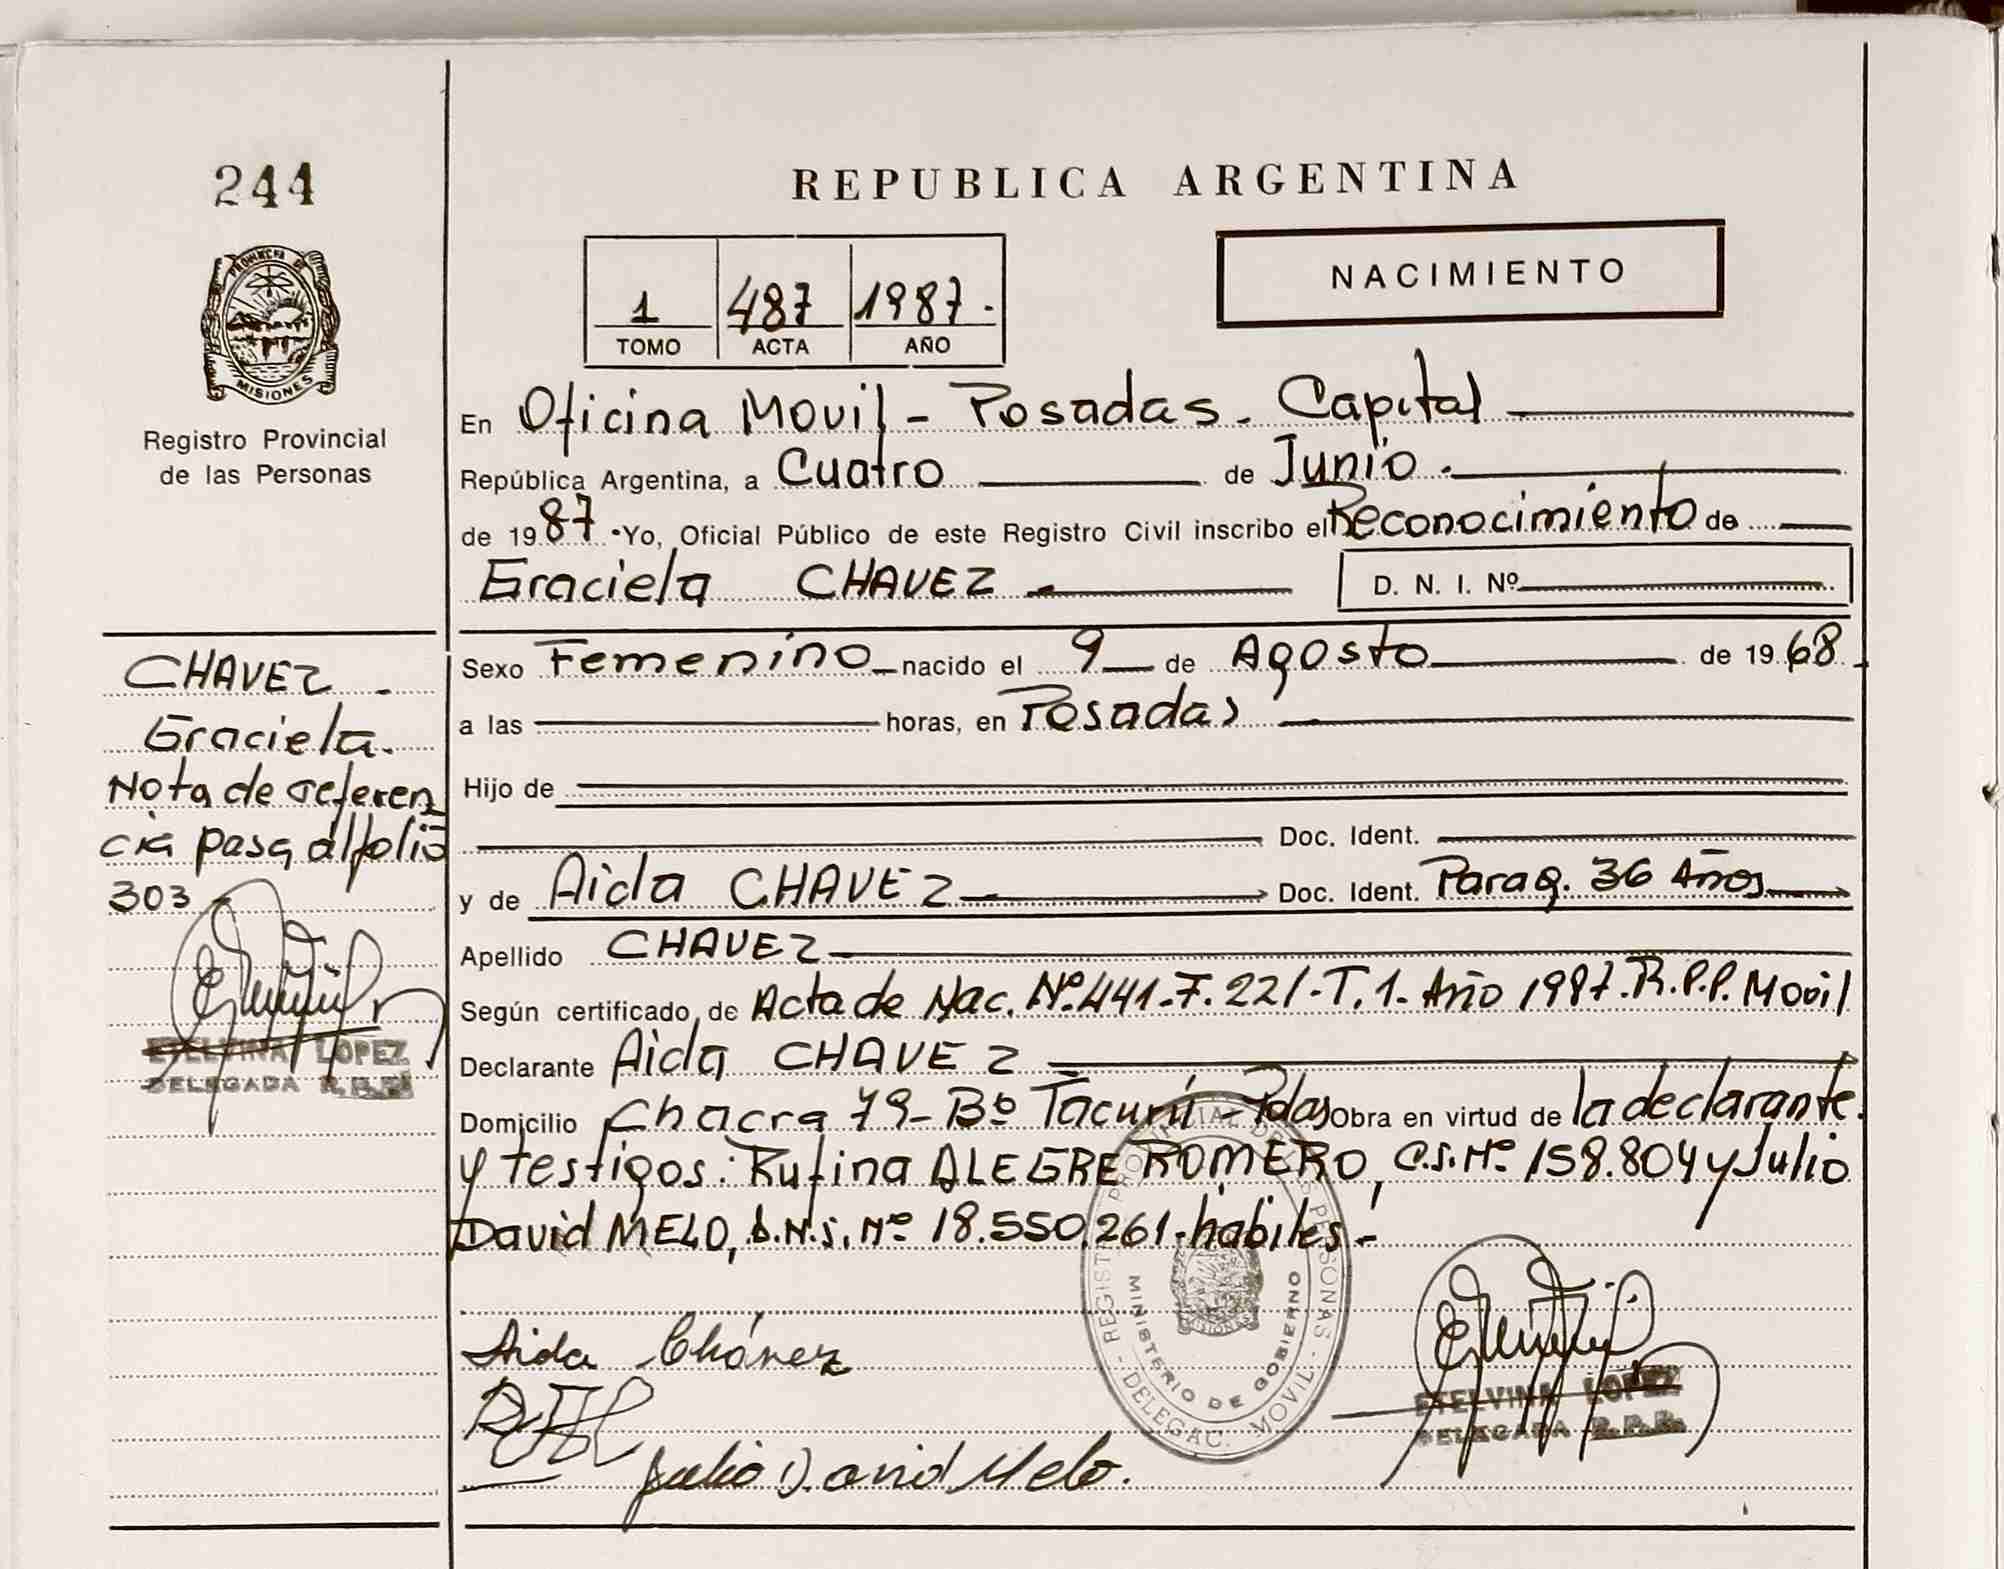 244
PROVINCIA DE
MISIONES
Registro Provincial
de las Personas
REPUBLICA ARGENTINA
1 487 1987.
TOMO ACTA AÑO
NACIMIENTO
En Oficina Movil - Posadas. Capital
República Argentina, a Cuatro de Junio.
de 1987. Yo, Oficial Público de este Registro Civil inscribo el Reconocimiento de
Graciela CHAVEZ D. N. I. Nº
Sexo Femenino nacido el 9 de Agosto de 1968.
a las horas, en Posadas
Hijo de
Doc. Ident.
y de Aida CHAVEZ Doc. Ident. Parag. 36 Años
Apellido CHAVEZ
Según certificado de Acta de Nac. Nº 441-F. 221-T.1- Año 1987. R.P.P. Movil
Declarante Aida CHAVEZ
Domicilio Chacra 79-Bº Tacurú - Pdas Obra en virtud de la declarante
y testigos: Rufina ALEGRE ROMERO, C.I. Nº 158.804 y Julio
David MELO, D.N.I. Nº 18.550.261-habiles-
Aida Chávez
Julio David Melo.
ETELVINA LOPEZ
DELEGADA R.P.P.
REGISTRO PROVINCIAL DE LAS PERSONAS
MINISTERIO DE GOBIERNO
MISIONES
- DELEGAC. MOVIL -
CHAVEZ -
Graciela.
Nota de referen
cia pasa al folio
303
ETELVINA LOPEZ
DELEGADA R.P.P.